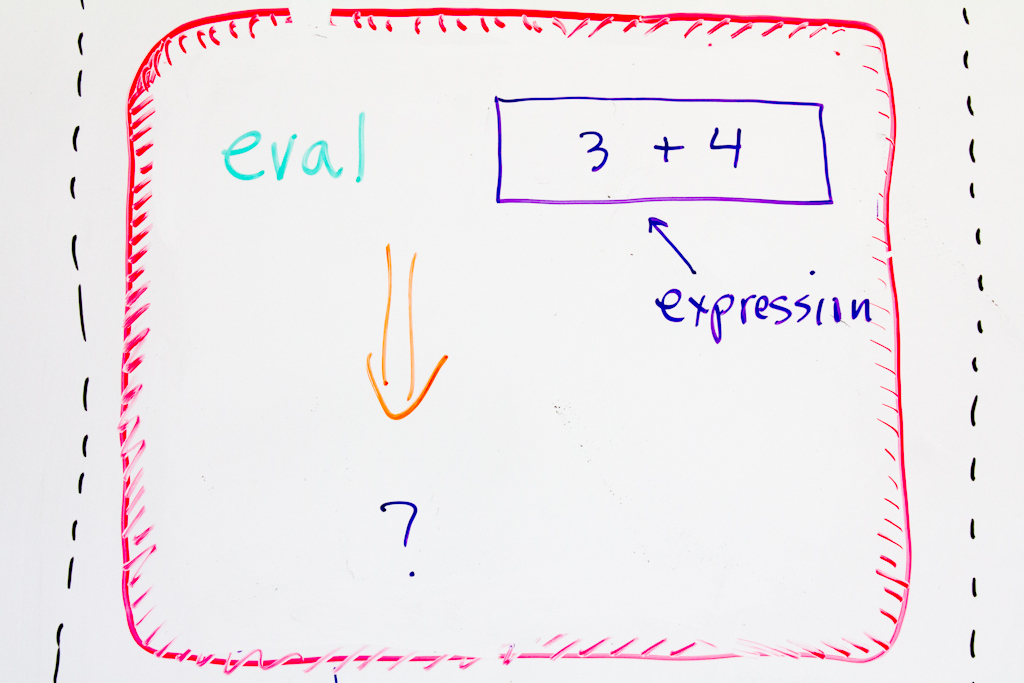 eval 3 + 4
expression
?